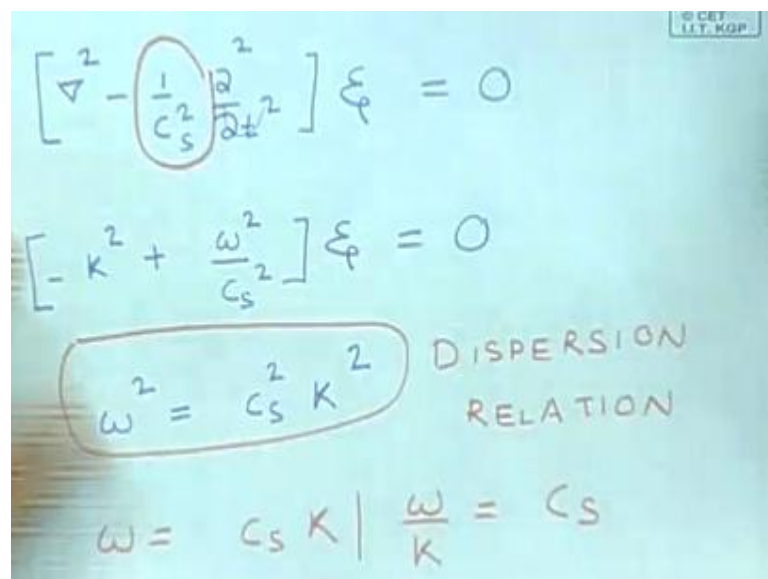 © CET
I.I.T. KGP
[∇² - 1/c_s² ∂²/∂t²] ξ = 0
[-K² + ω²/c_s²] ξ = 0
ω² = c_s² K²
DISPERSION
RELATION
ω = c_s K | ω/K = c_s